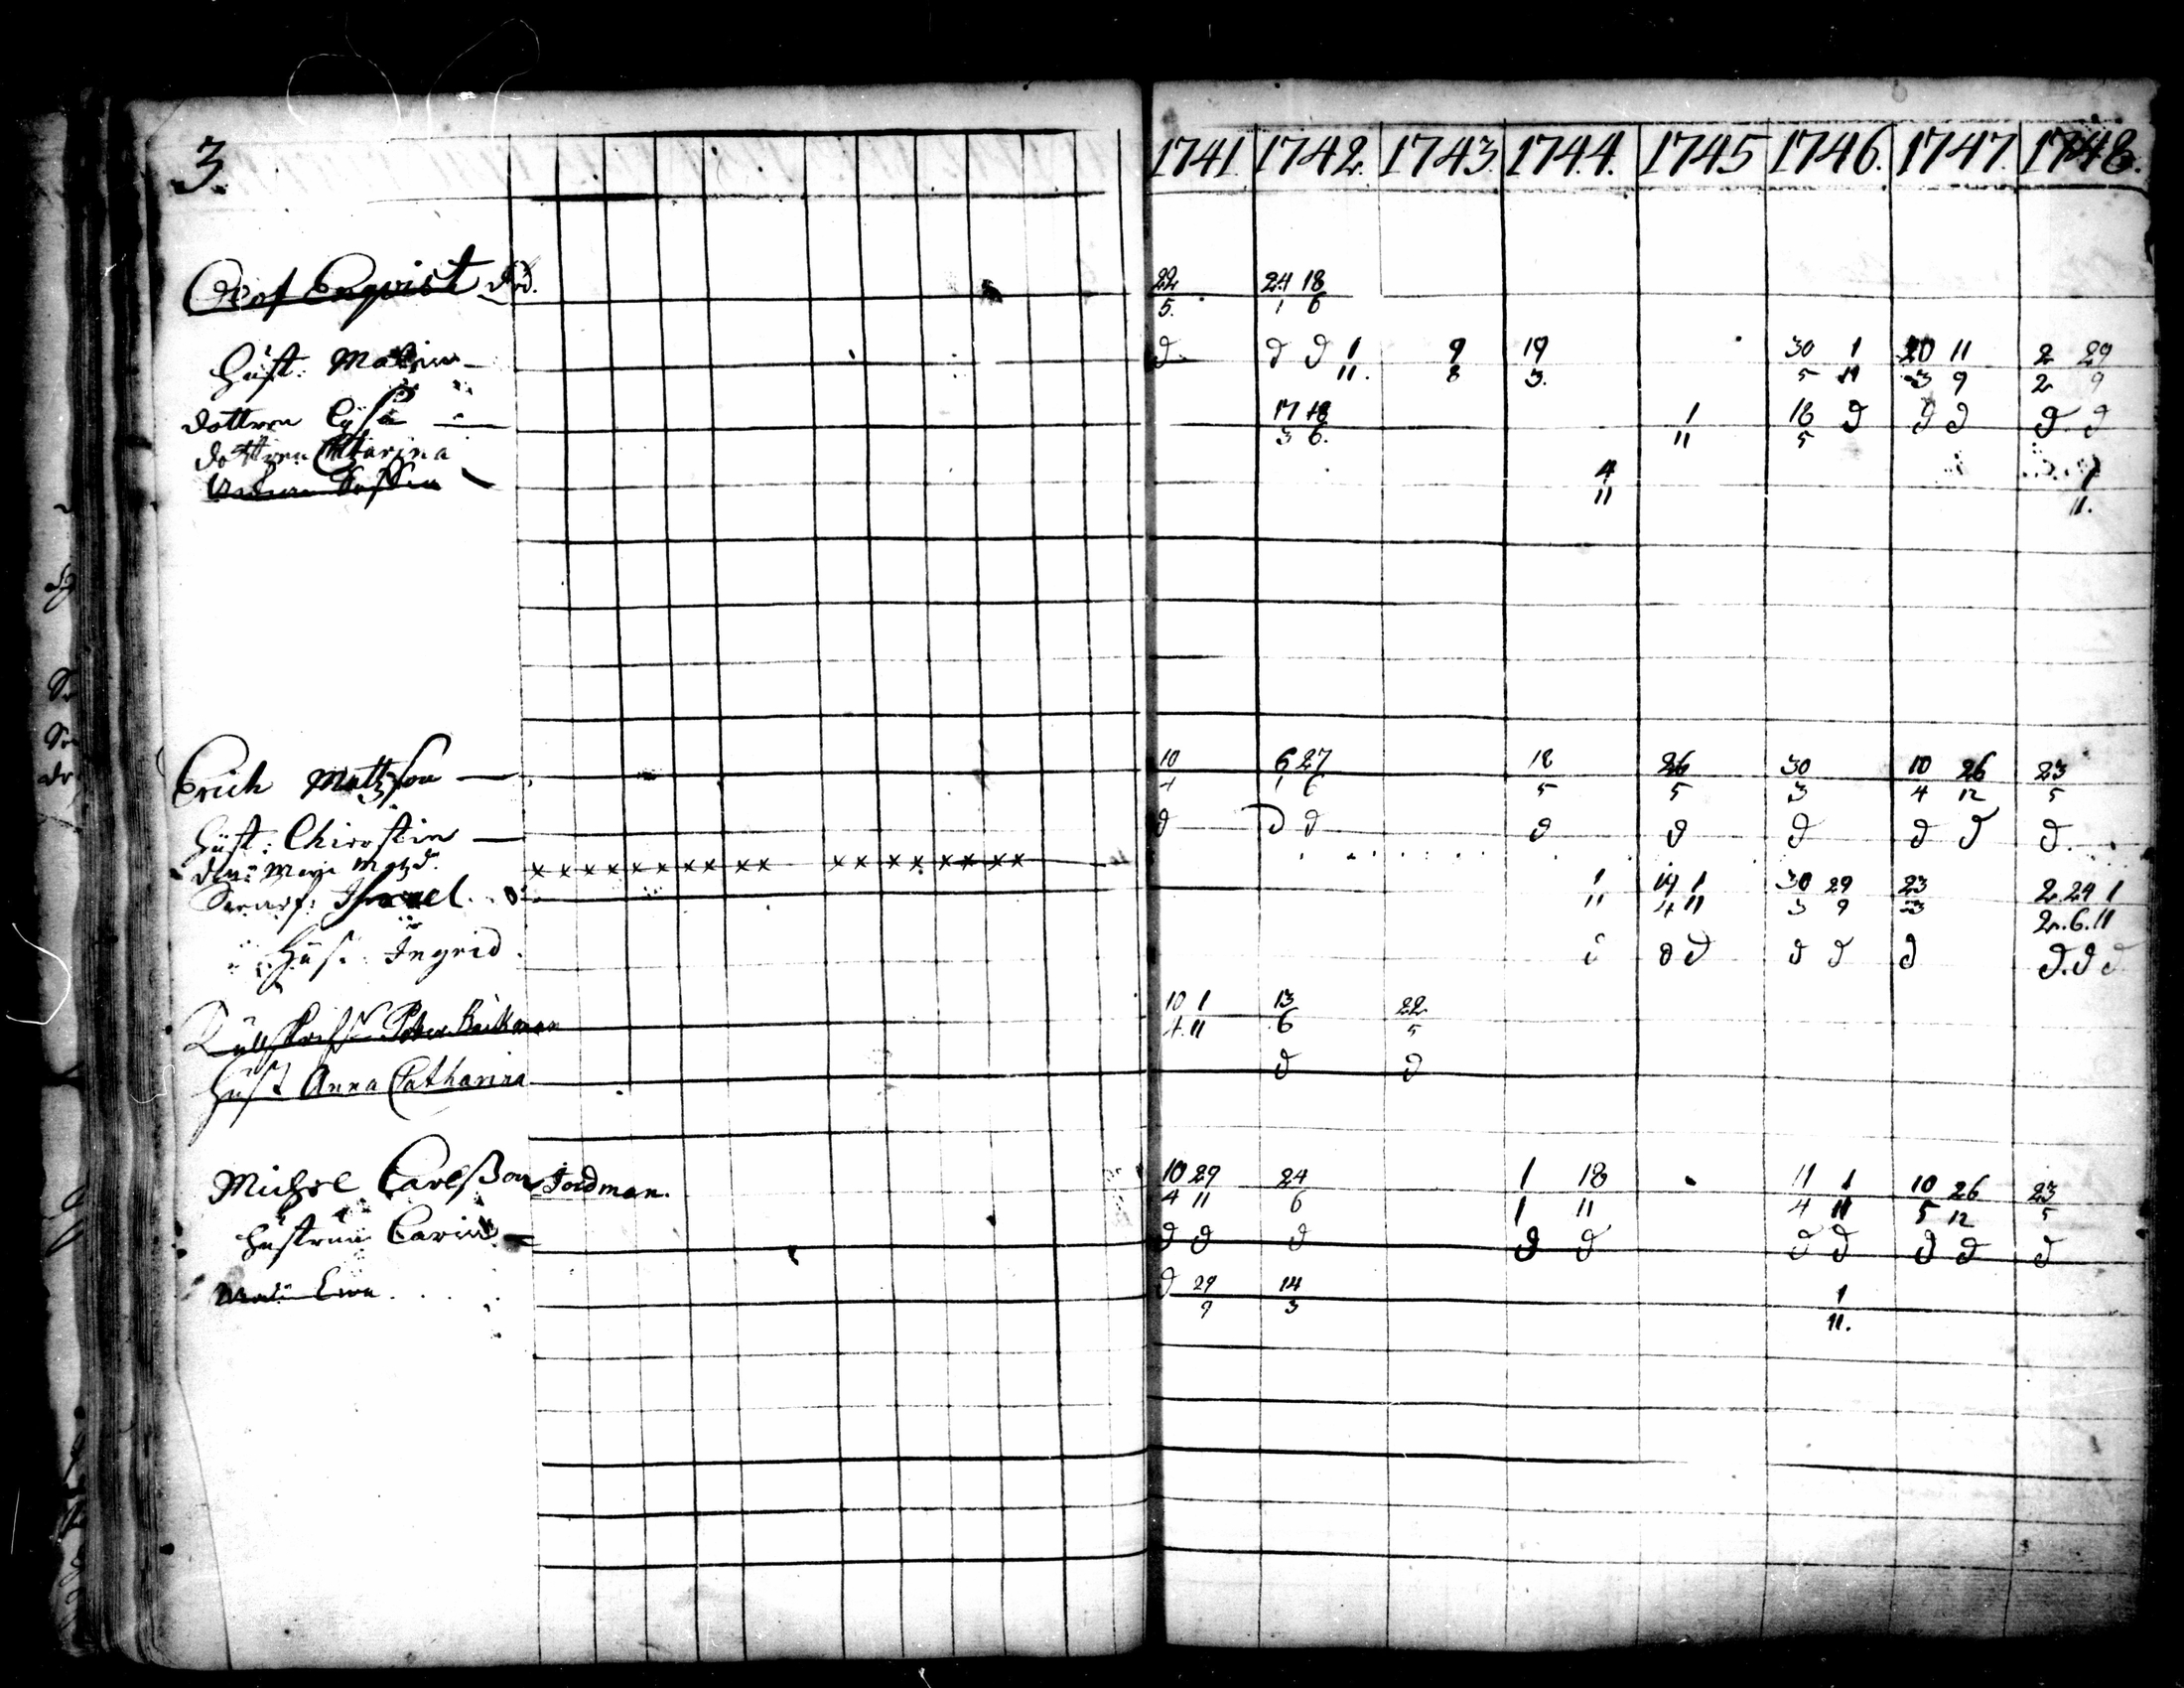 3.
1741. 1742. 1743. 1744. 1745 1746. 1747. 1748.
Olof Enqvist död.
22/5. 24/1 18/6
Hust: Malin
D. D D 1/11. 9/8 19/3. 30/5 1/11 20/3 11/9 2/2 29/9
dottren Lysa
17/3 18/6. 1/11 18/5 D D D D D
dottren Catarina
4/11 1/11.
Erich Mattzson
10/4 6/1 27/6 18/5 26/5 30/3 10/4 26/12 23/5
Hust: Chierstin
D D D D D D D D D.
x x x x x x x x x x x x x x x x x
Israel
1/11 14/4 1/11 30/3 29/9 23/3 2/2. 24/6. 1/11
Hus: Ingrid
D D D D D D D. D D
Peter Beckman
10/4. 1/11 13/6 22/5
Hust Anna Catharina
D D
Michel Carlsson Jordman.
10/4 29/11 24/6 1/1 18/11 11/4 1/11 10/5 26/12 23/5
hustrun Carin
D D D D D D D D D D
Ewa
D 29/9 14/3 1/11.